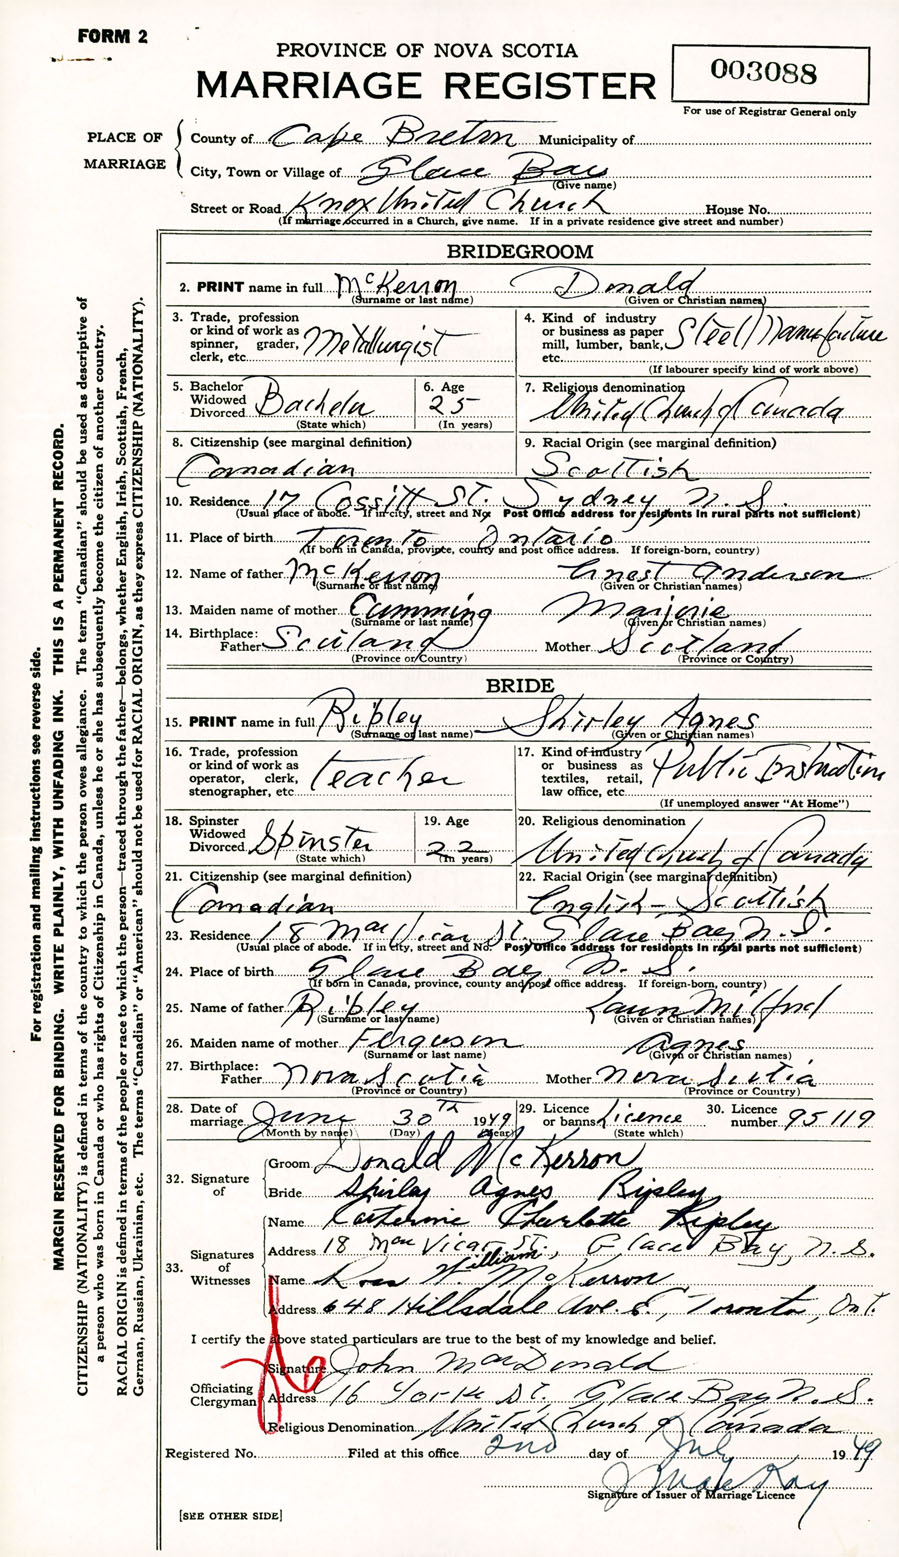 FORM 2
PROVINCE OF NOVA SCOTIA
MARRIAGE REGISTER
003088
For use of Registrar General only
PLACE OF MARRIAGE
County of Cape Breton Municipality of
City, Town or Village of Glace Bay
(Give name)
Street or Road Knox United Church House No.
(If marriage occurred in a Church, give name. If in a private residence give street and number)
BRIDEGROOM
2. PRINT name in full McKerron Donald
(Surname or last name) (Given or Christian names)
3. Trade, profession or kind of work as spinner, grader, clerk, etc. Metallurgist
4. Kind of industry or business as paper mill, lumber, bank, etc. Steel Manufacture
(If labourer specify kind of work above)
5. Bachelor Widowed Divorced Bachelor
(State which)
6. Age 25
(In years)
7. Religious denomination United Church of Canada
8. Citizenship (see marginal definition) Canadian
9. Racial Origin (see marginal definition) Scottish
10. Residence 17 Cossitt St. Sydney N.S.
(Usual place of abode. If in city, street and No. Post Office address for residents in rural parts not sufficient)
11. Place of birth Toronto Ontario
(If born in Canada, province, county and post office address. If foreign-born, country)
12. Name of father McKerron Ernest Anderson
(Surname or last name) (Given or Christian names)
13. Maiden name of mother Cumming Marjorie
(Surname or last name) (Given or Christian names)
14. Birthplace: Father Scotland Mother Scotland
(Province or Country) (Province or Country)
BRIDE
15. PRINT name in full Ripley Shirley Agnes
(Surname or last name) (Given or Christian names)
16. Trade, profession or kind of work as operator, clerk, stenographer, etc Teacher
17. Kind of industry or business as textiles, retail, law office, etc. Public Instruction
(If unemployed answer "At Home")
18. Spinster Widowed Divorced Spinster
(State which)
19. Age 22
(In years)
20. Religious denomination United Church of Canada
21. Citizenship (see marginal definition) Canadian
22. Racial Origin (see marginal definition) English - Scottish
23. Residence 18 MacVicar St. Glace Bay N.S.
(Usual place of abode. If in city, street and No. Post Office address for residents in rural parts not sufficient)
24. Place of birth Glace Bay N.S.
(If born in Canada, province, county and post office address. If foreign-born, country)
25. Name of father Ripley Milford
(Surname or last name) (Given or Christian names)
26. Maiden name of mother Ferguson Agnes
(Surname or last name) (Given or Christian names)
27. Birthplace: Father Nova Scotia Mother Nova Scotia
(Province or Country) (Province or Country)
28. Date of marriage June 30th 1949
(Month by name) (Day) (Year)
29. Licence or banns Licence
(State which)
30. Licence number 95119
32. Signature of
Groom Donald McKerron
Bride Shirley Agnes Ripley
33. Signatures of Witnesses
Name Katherine Charlotte Ripley
Address 18 MacVicar St., Glace Bay, N.S.
William
Name Ross W. McKerron
Address 648 Hillsdale Ave E., Toronto, Ont.
I certify the above stated particulars are true to the best of my knowledge and belief.
Officiating Clergyman
Signature John MacDonald
Address 16 York St. Glace Bay N.S.
Religious Denomination United Church of Canada
Registered No. Filed at this office 2nd day of July 1949
J MacKay
Signature of Issuer of Marriage Licence
[SEE OTHER SIDE]
For registration and mailing instructions see reverse side.
MARGIN RESERVED FOR BINDING. WRITE PLAINLY, WITH UNFADING INK. THIS IS A PERMANENT RECORD.
CITIZENSHIP (NATIONALITY) is defined in terms of the country to which the person owes allegiance. The term "Canadian" should be used as descriptive of
a person who was born in Canada or who has rights of Citizenship in Canada, unless he or she has subsequently become the citizen of another country.
RACIAL ORIGIN is defined in terms of the people or race to which the person—traced through the father—belongs, whether English, Irish, Scottish, French,
German, Russian, Ukrainian, etc. The terms "Canadian" or "American" should not be used for RACIAL ORIGIN, as they express CITIZENSHIP (NATIONALITY).